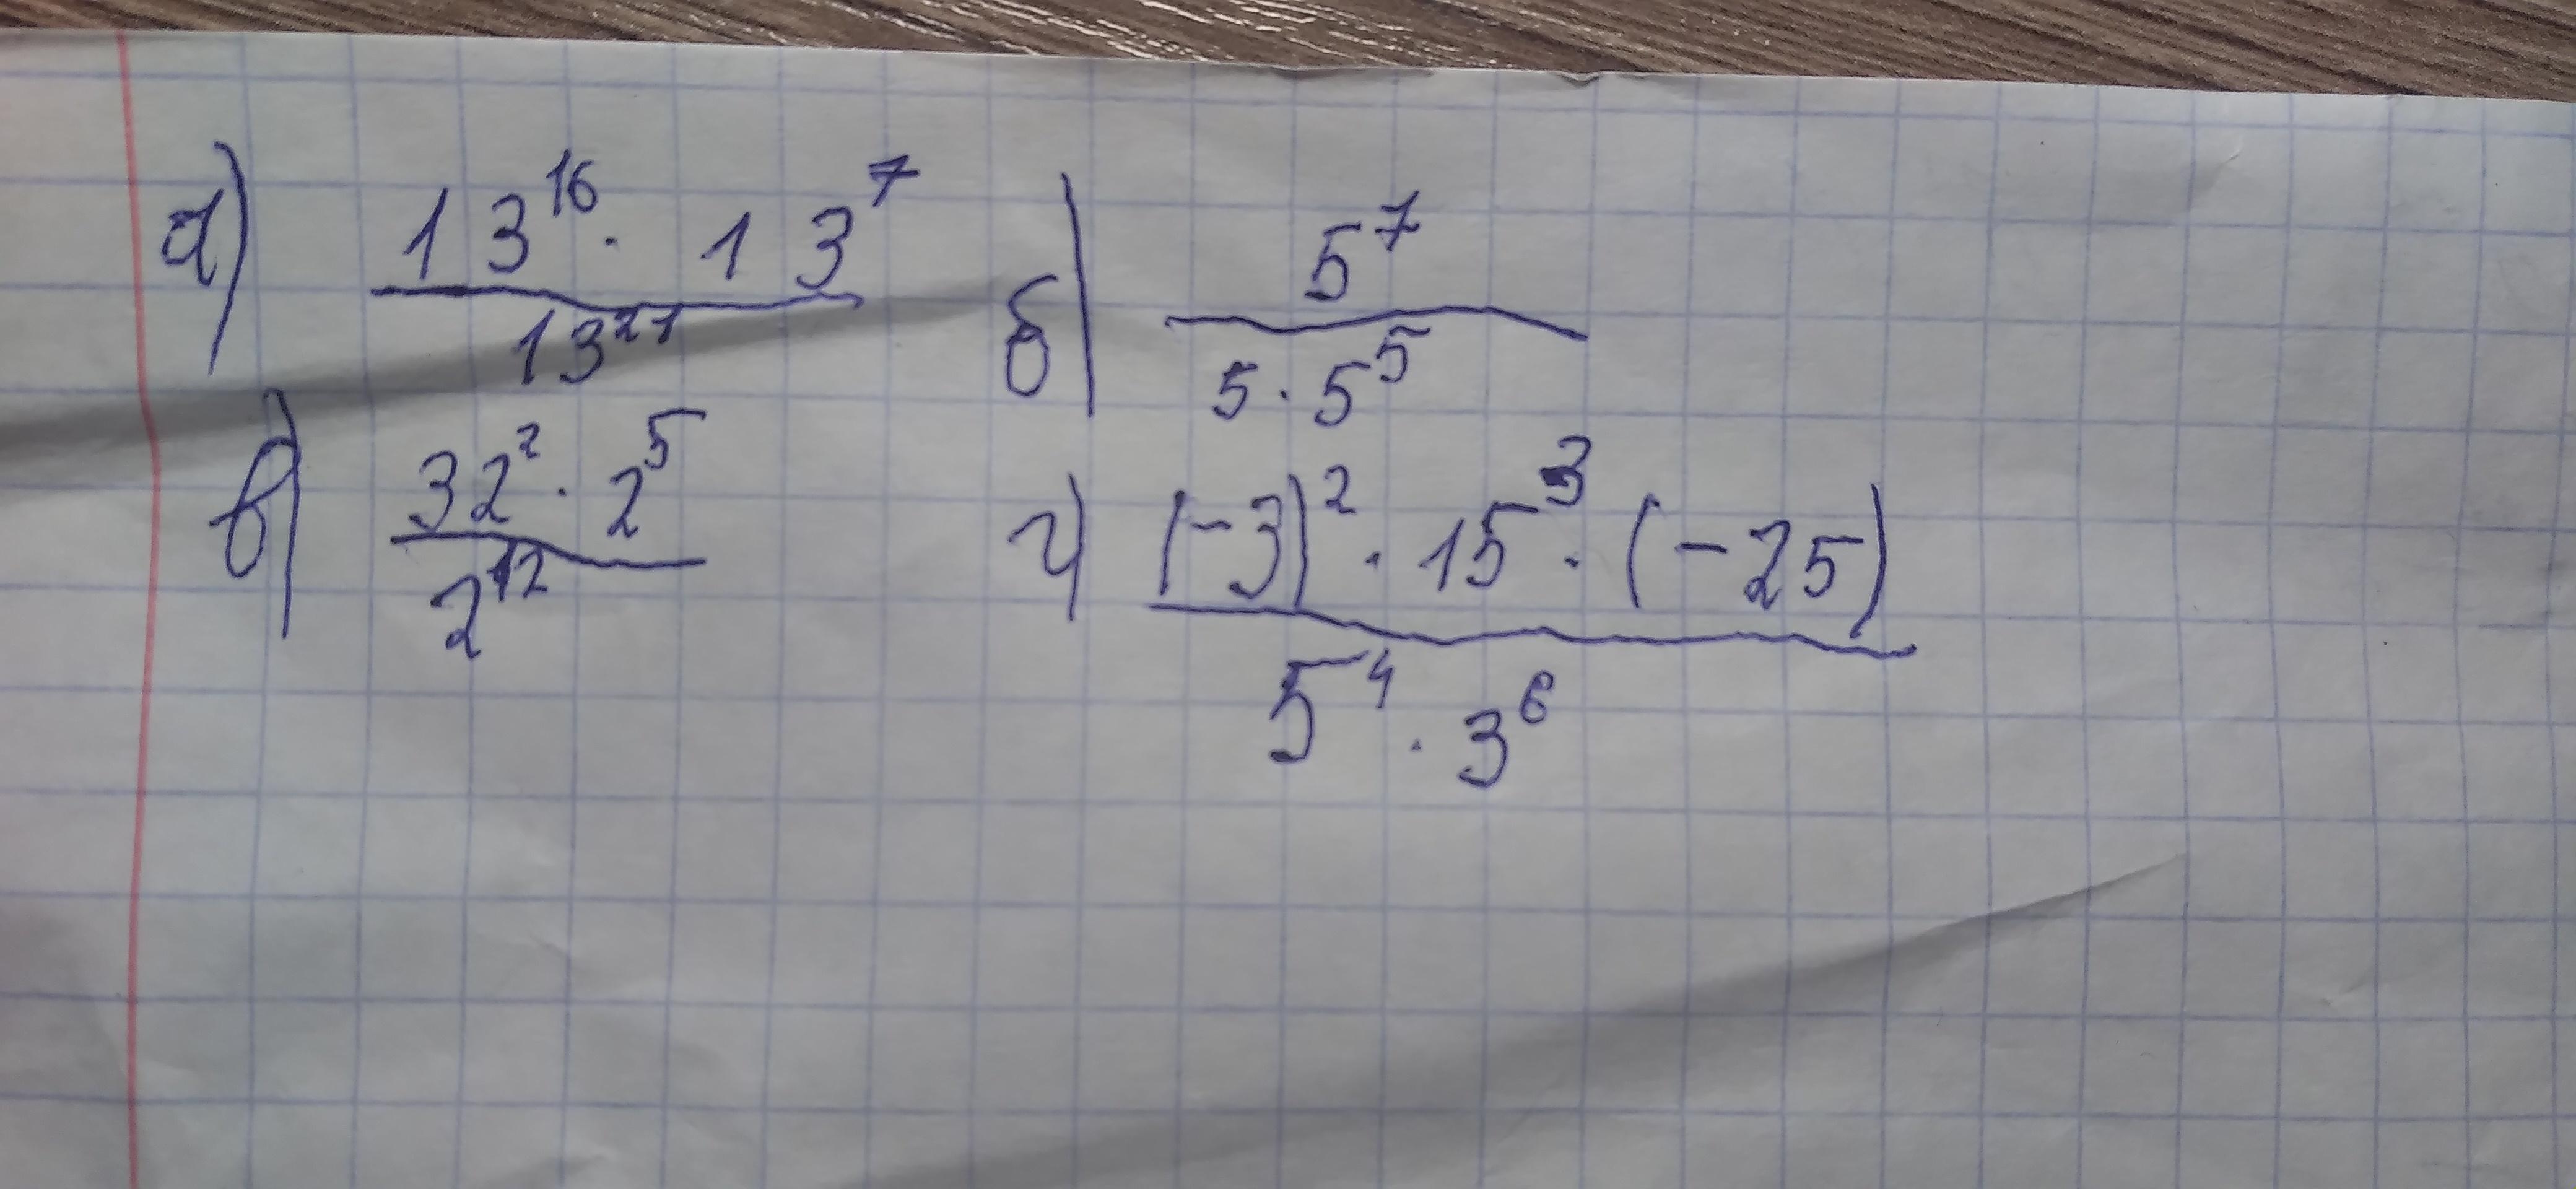 а) (13¹⁶ · 13⁷)/13²¹ б) 5⁷/(5 · 5⁵)
в) (32² · 2⁵)/2¹² г) ((-3)² · 15³ · (-25))/(5⁴ · 3⁶)